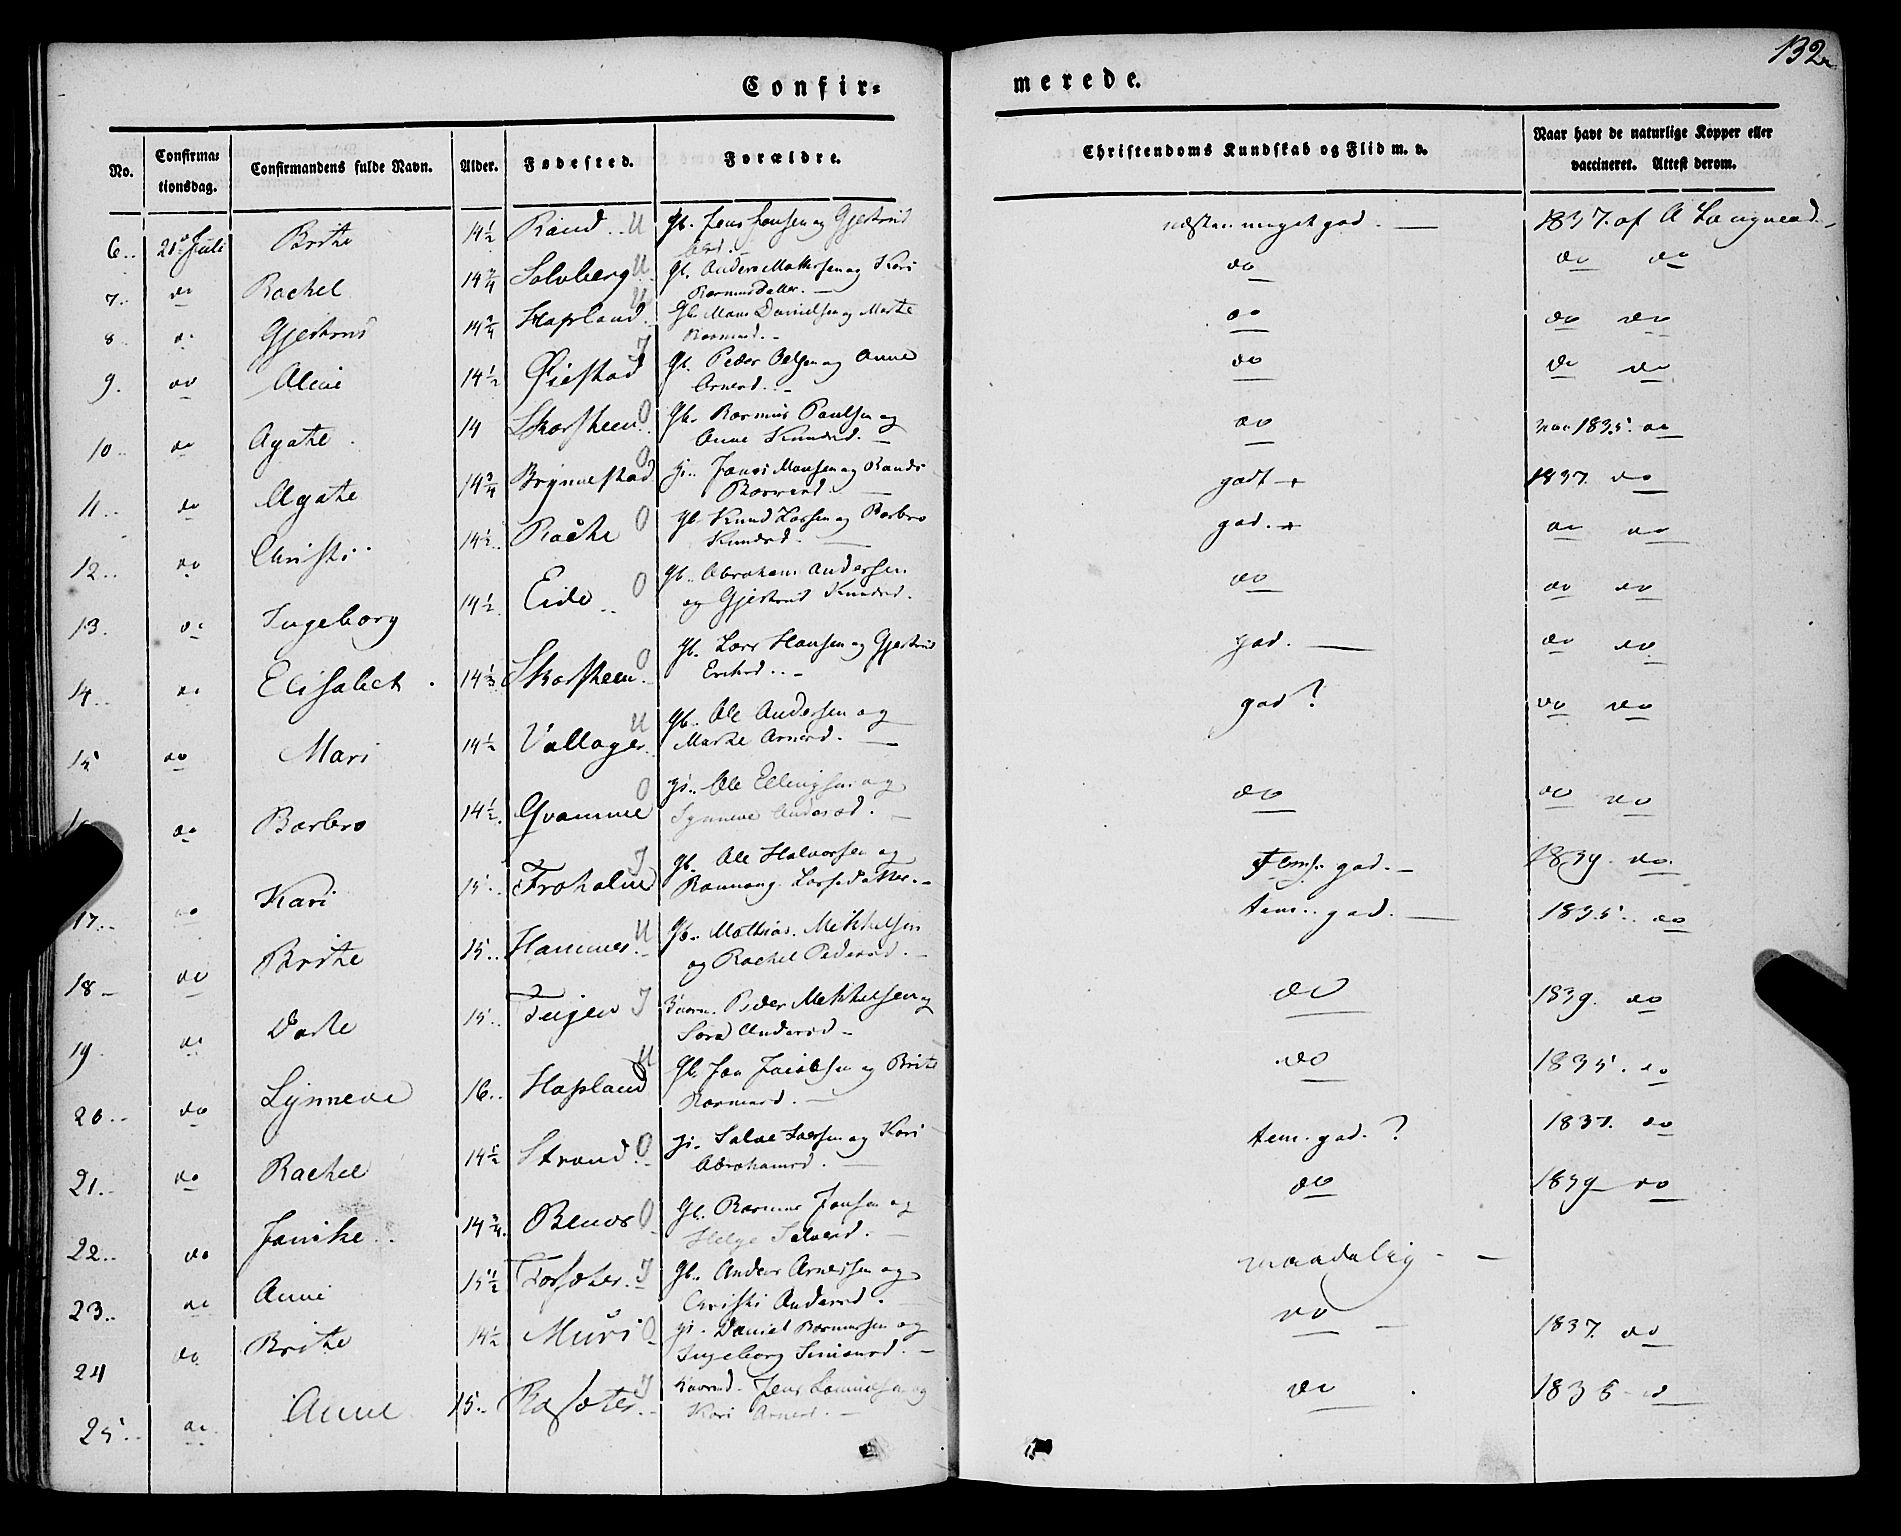 132
Confir-
merede.
No.
Confirma-
tionsdag.
Confirmandens fulde Navn.
Alder.
Fødested.
Forældre.
Christendoms Kundskab og Flid m. v.
Naar havt de naturlige Kopper eller
vaccineret. Attest derom.
6.. 21de Juli Brithe 14½ Rand.. U Gb. Jens Jensen og Gjertrud
næsten meget god. — 1837. af A
7.. do Rachel 14¾ Solvberg U Gb. Anders Mathesen og Kari
Rasmusdatter. —
do do do
8.. do Gjertrud 14¾ Hopland U Gb. Mons Danielsen og Marthe
Rasmusd. —
do do do
9. do Oline 14½ Øiestad I Gb. Peder Olsen og Anne
Arnesd. —
do do do
10.. do Agathe 14 Skorsteen O Gb. Rasmus Paulsen og
Anne Knudsd. —
do 1835. do
11.. do Agathe 14¾ Brynnestad O Jonas Monsen og Randi
Rasmusd. —
godt + 1837. do
12.. do Christi.. 14½ Raette O Gb. Knud Larsen og Barbro
Knudsd. —
god. + do do
13. do Ingeborg 14½ Eide.. O Gb. Abraham Andersen
og Gjertrud Knudsd.
do do do
14.. do Elisabet. 14⅓ Skorsteen O Gb. Lars Hansen og Gjertrud
god. — do do
15 do Mari 14½ Vollager U Gb. Ole Andersen og
Marthe Arnesd. —
god? do do
do Barbro 14½ Qvamme O Ole Ellingsen og
Synneve Andersd. —
do do do
17.. do Kari 15.. Froholm I Gb. Ole Halvorsen og
Rannveig Larsdatter. —
god. — 1839. do
18 — do Brithe 15.. Hammer U Gb. Mathias Mikkelsen
og Rachel Pedersd. —
tem.. god. — 1835.. do
19. do Dorte 15.. Teigen I Peder Mikkelsen og
Andersd —
do 1839. do
20.. do Synneve 16.. Hopland U Gb. Jon Jacobsen og Brithe
Rasmusd. —
do 1835. do
21.. do Rachel 14½ Strand. O Salve Larsen og Kari
Abrahamsd. —
tem. god. ? 1837. do
22.. do Janike.. 14¾. O Gb. Rasmus Jonsen og
Helge Salvesd. —
do 1839 do
23.. do Anne 15½ Torsæter. I Gb. Anders Arnesen og
Christi Andersd. —
maadelig. —
24 do Brithe 14½ Muri O Daniel Rasmussen og
Ingeborg Simonsd. —
do — 1837. do
25.. do Anne 15.. I Jens Samuelsen og
Kari Arnesd. —
do . 1836 — do